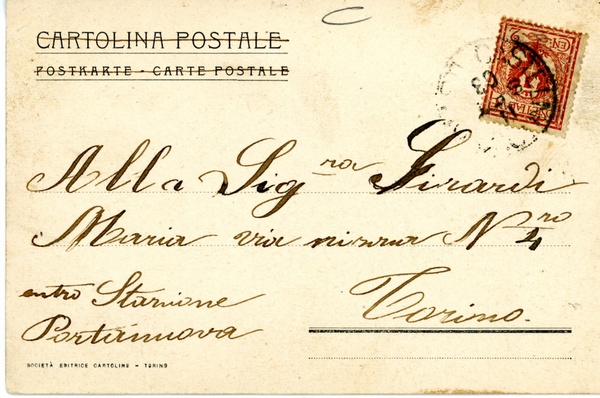 CARTOLINA POSTALE
POSTKARTE - CARTE POSTALE
Alla Sig.ra Girardi
Maria via nizza N. 4ro
entro Stazione
Portanuova
Torino.
SOCIETÀ EDITRICE CARTOLINE - TORINO